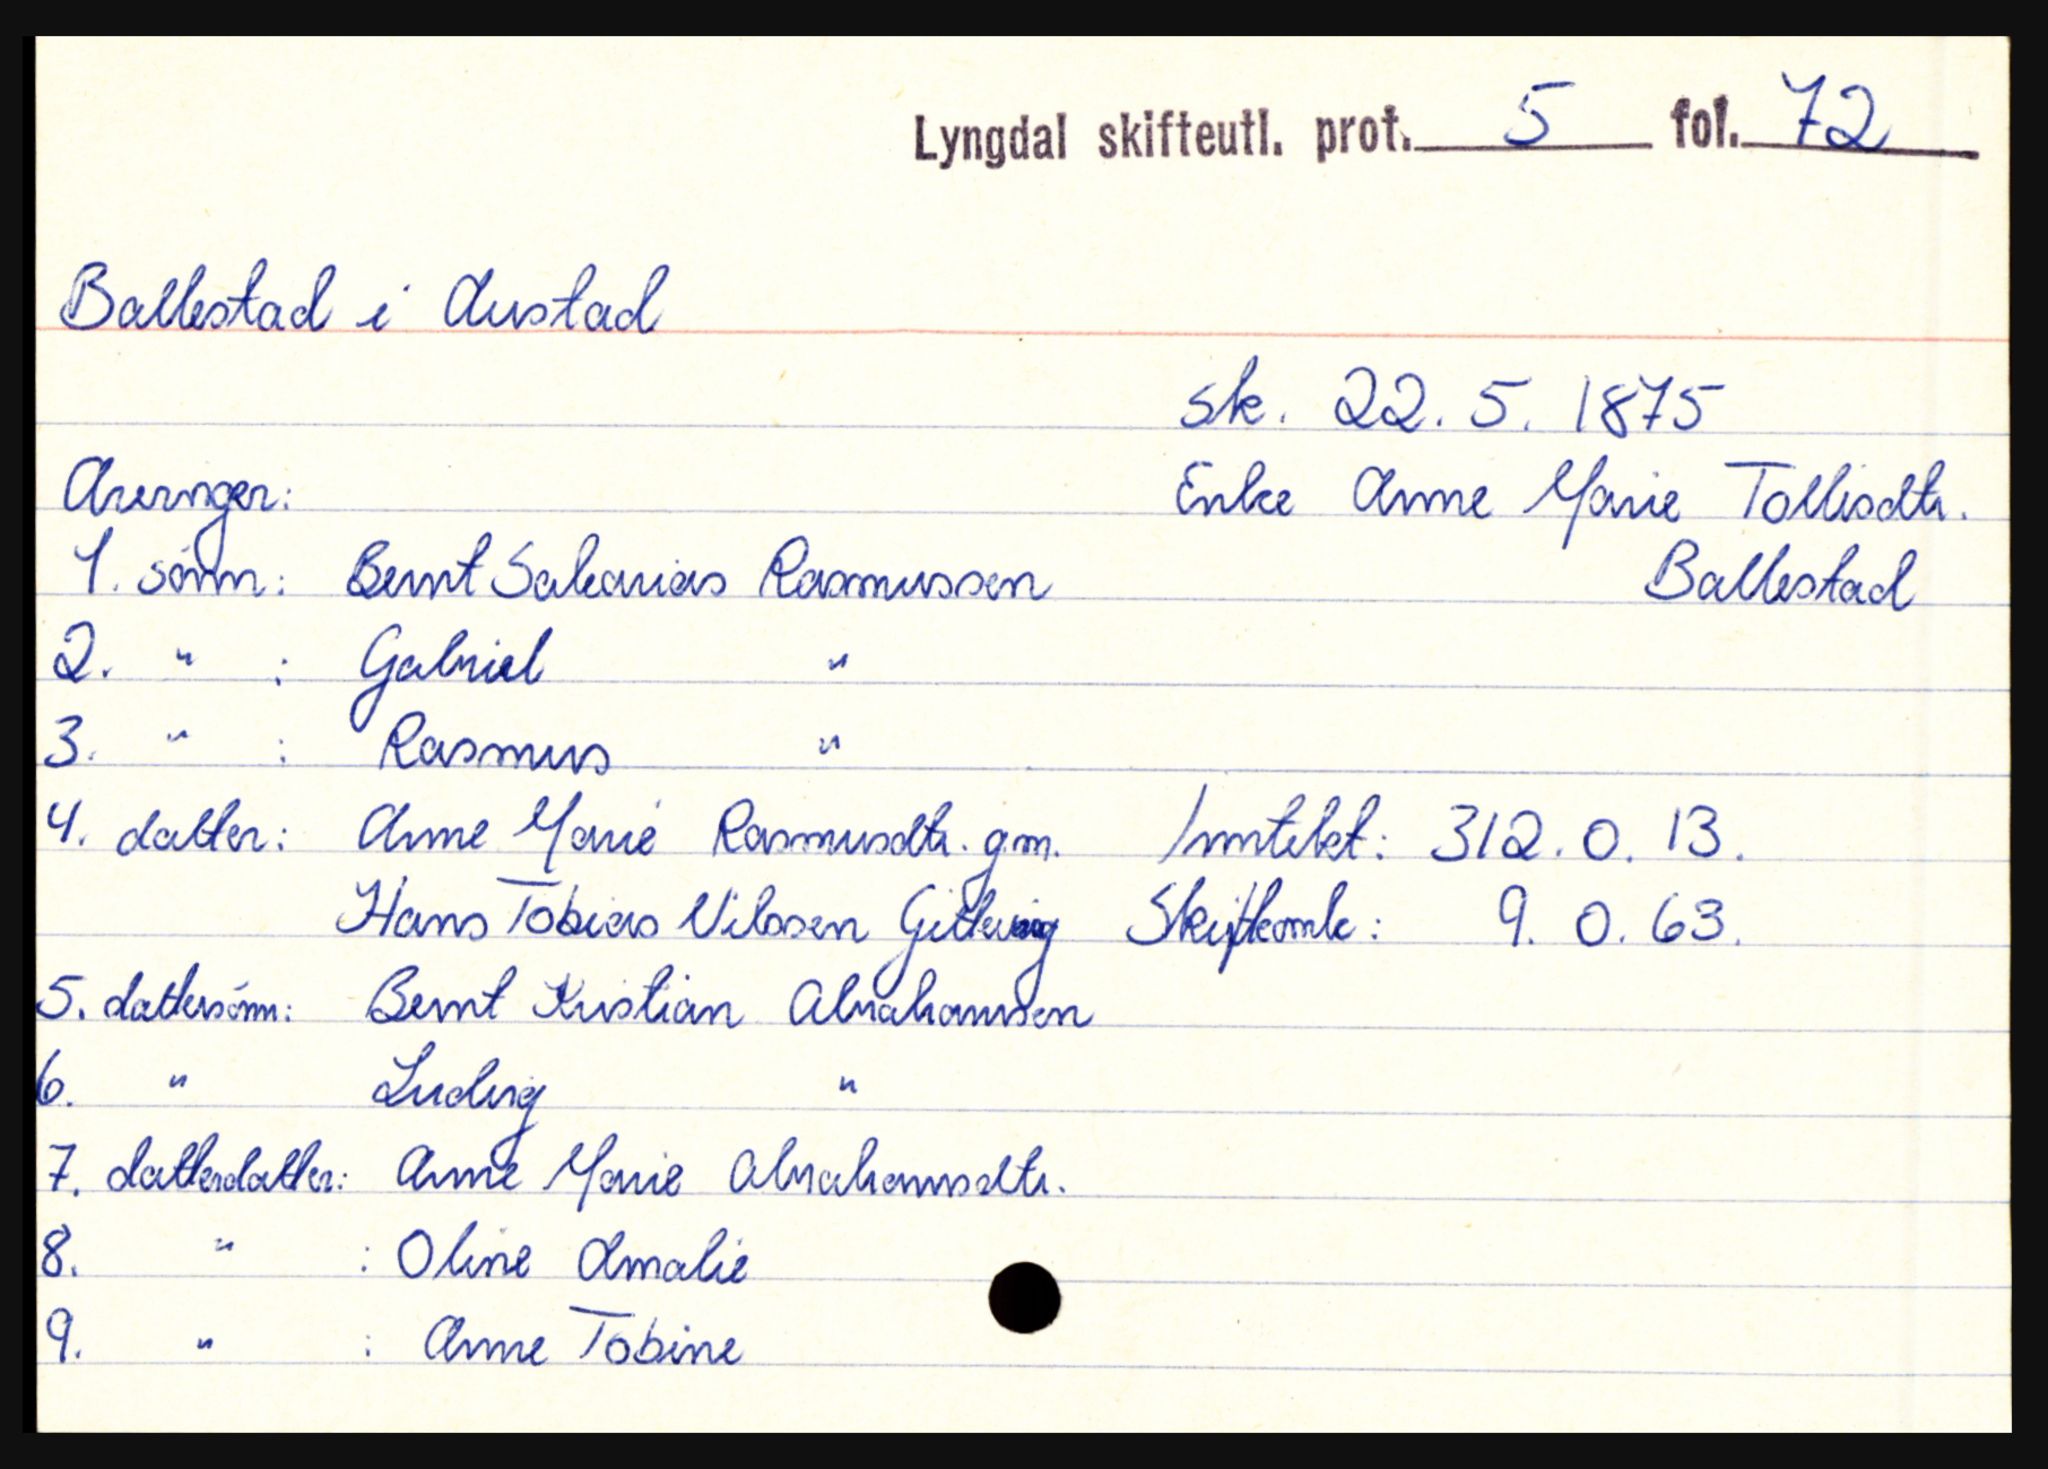 Lyngdal skifteutl. prot. 5 fol. 72
Ballestad i Austad
sk. 22. 5. 1875
Arvinger: Enke Anne Marie Tollisdtr.
1. sønn: Bernt Sakarias Rasmussen Ballestad
2. " : Gabriel "
3. " : Rasmus "
4. datter: Anne Marie Rasmusdtr. gm. Inntekt: 312. 0. 13.
Hans Tobias Nilssen Gitlevåg Skifteomk: 9. 0. 63.
5. dattersønn: Bernt Kristian Abrahamsen
6. " Ludvig "
7. datterdatter: Anne Marie Abrahamsdtr.
8. " : Oline Amalie
9. " : Anne Tobine